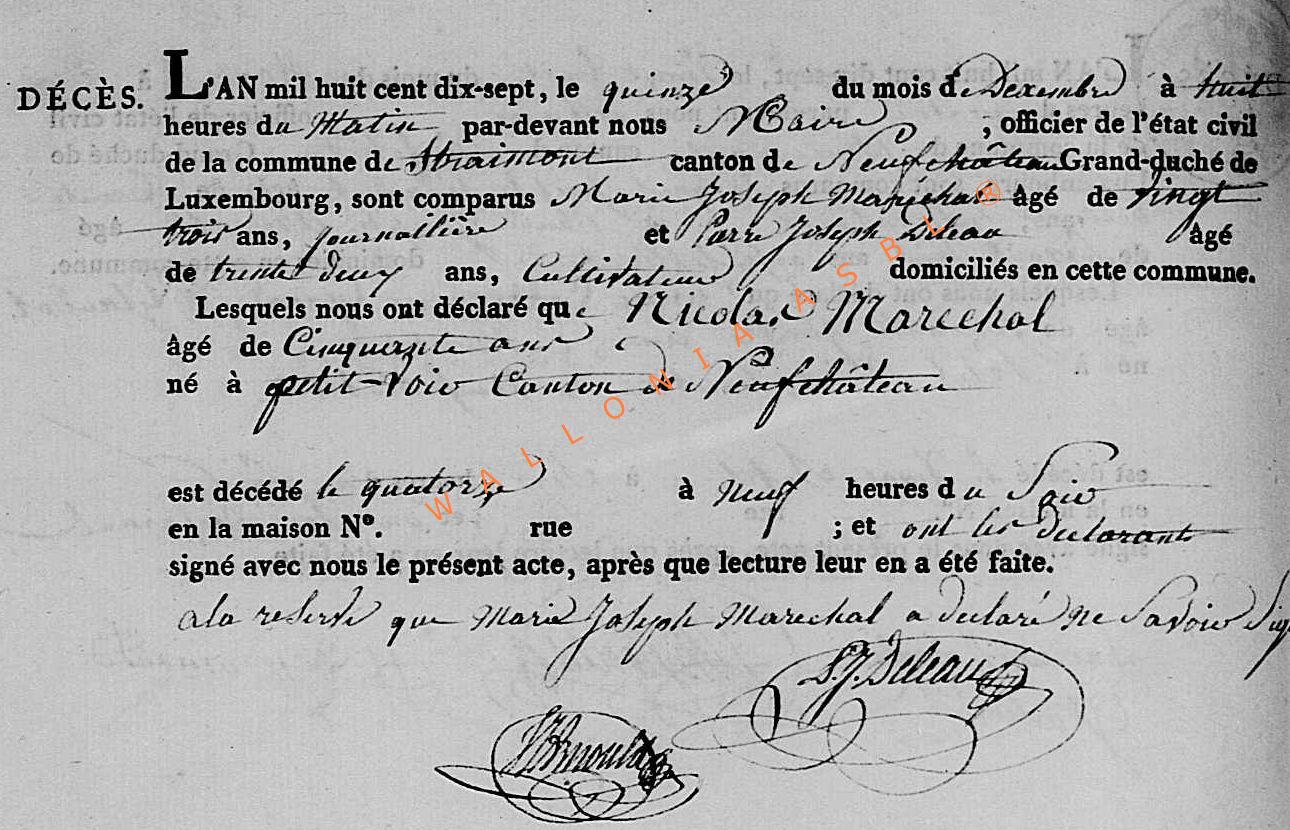 DÉCÈS.
L'AN mil huit cent dix-sept, le quinze du mois de Dexembre à huit
heures du Matin par-devant nous Maire, officier de l'état civil
de la commune de Straimont canton de Neufchâteau Grand-duché de
Luxembourg, sont comparus Marie Joseph Maréchal âgé de vingt
trois ans, journallière et Pierre Joseph Deleau âgé
de trente deux ans, Cultivateur domiciliés en cette commune.
Lesquels nous ont déclaré que Nicolas Marechal
âgé de Cinquante ans
né à petit-Voir Canton de Neufchâteau
est décédé le quatorze à neuf heures du Soir
en la maison N°. rue ; et ont les declarant
signé avec nous le présent acte, après que lecture leur en a été faite.
a la reserve que Marie Joseph Marechal a declaré ne Savoir Sig
P. J. Deleau
Arnould
WALLONIA ASBL ®